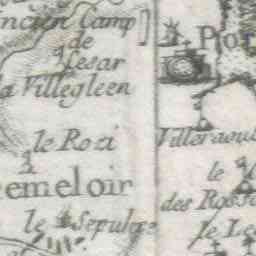 ncien Camp
de
Cesar
la Villegleen
le Rozi
emeloir
le Sepulcre
Por
Villeraoul
le
des Rosse
le Le